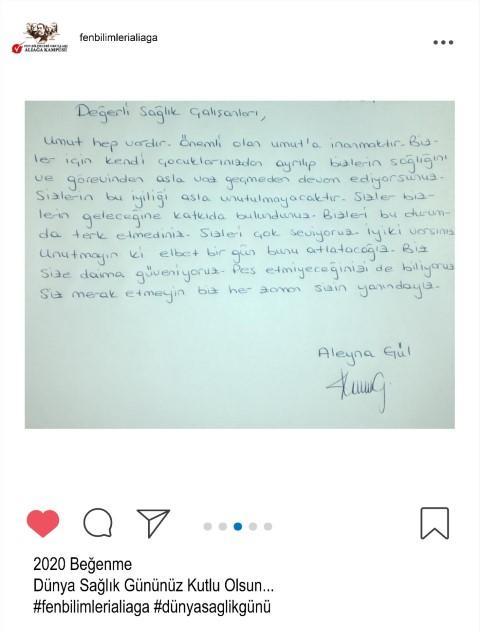 fenbilimlerialiaga
ALİAĞA KAMPÜSÜ
Değerli Sağlık Çalışanları,
Umut hep vardır. Önemli olan umut'a inanmaktır. Biz-
ler için kendi çocuklarınızdan ayrılıp bizlerin sağlığını
ve görevinden asla vaz geçmeden devam ediyorsunuz.
Sizlerin bu iyiliği asla unutulmayacaktır. Sizler biz-
lerin geleceğine katkıda bulundunuz. Bizleri bu durum-
da terk etmediniz. Sizleri çok seviyoruz. İyiki varsınız
Unutmayın ki elbet bir gün bunu atlatacağız. Biz
Size daima güveniyoruz. Pes etmiyeceğinizi de biliyoruz
Siz merak etmeyin biz her zaman sizin yanındayız.
Aleyna Gül
2020 Beğenme
Dünya Sağlık Gününüz Kutlu Olsun...
#fenbilimlerialiaga #dünyasaglikgünü